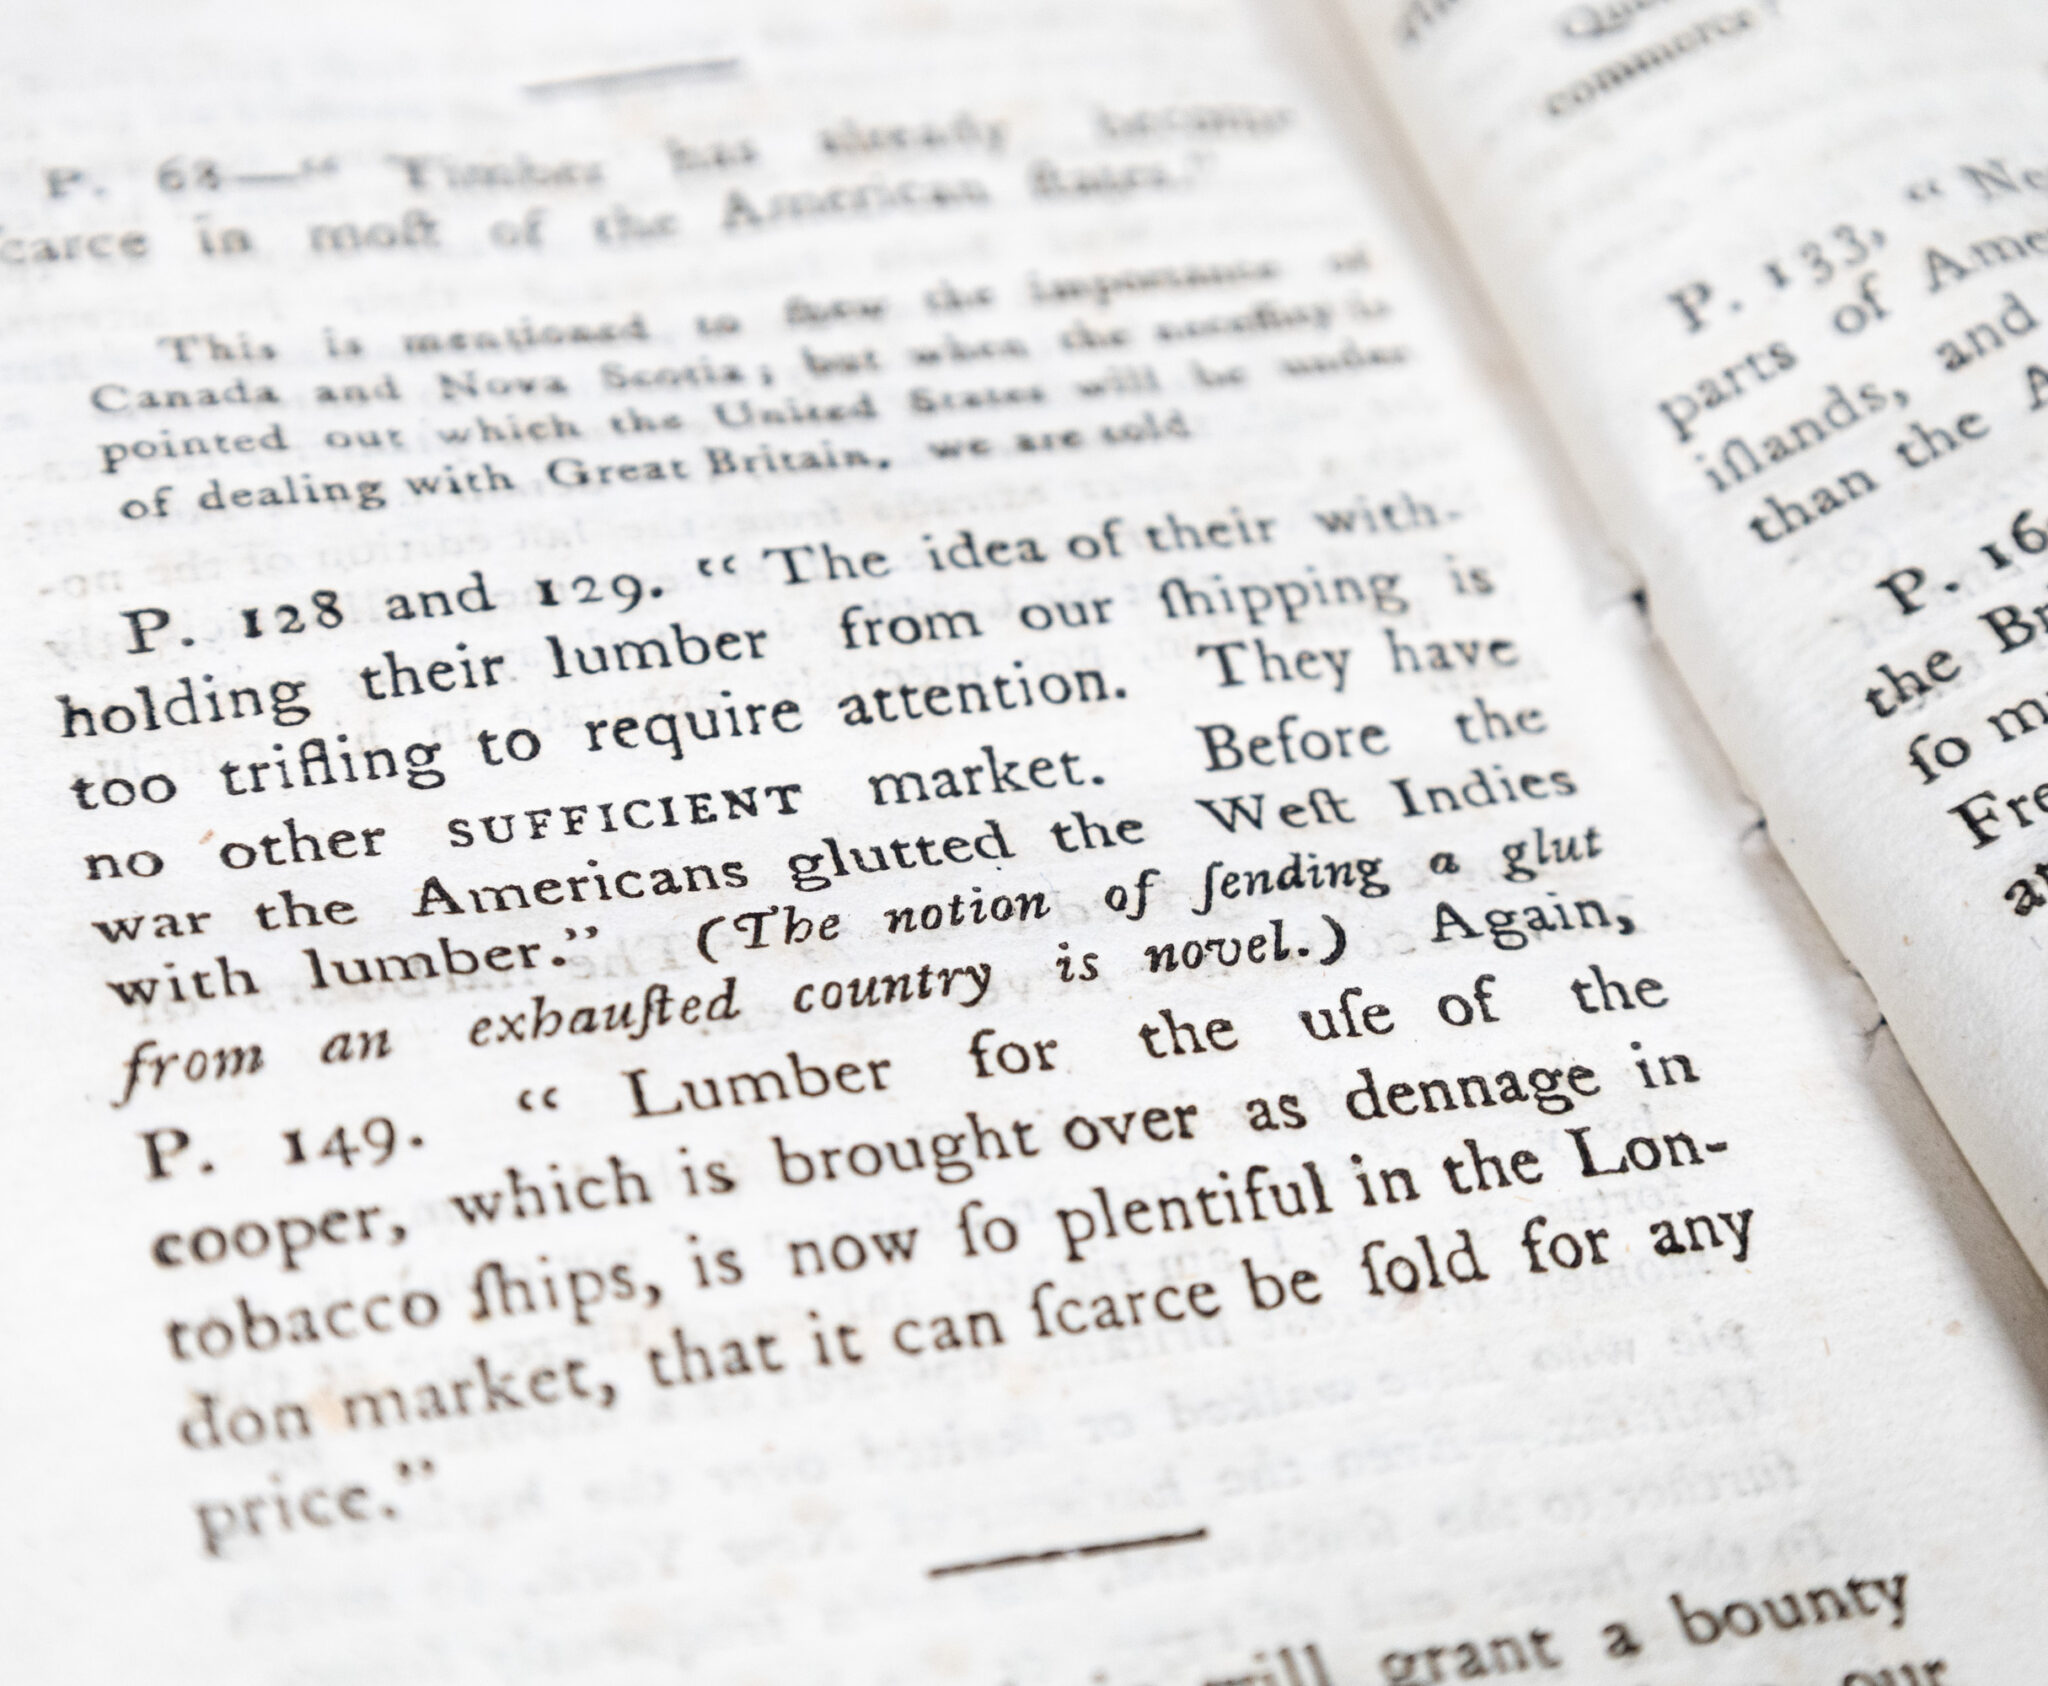 P. 68—“ Timber has already become
ſcarce in moſt of the American ſtates.”
This is mentioned to ſhew the importance of
Canada and Nova Scotia; but when the neceſſity is
pointed out which the United States will be under
of dealing with Great Britain, we are told
P. 128 and 129. “ The idea of their with-
holding their lumber from our ſhipping is
too trifling to require attention. They have
no other SUFFICIENT market. Before the
war the Americans glutted the Weſt Indies
with lumber.” (The notion of ſending a glut
from an exhauſted country is novel.) Again,
P. 149. “ Lumber for the uſe of the
cooper, which is brought over as dennage in
tobacco ſhips, is now ſo plentiful in the Lon-
don market, that it can ſcarce be ſold for any
price.”
will grant a bounty
our
commerce?
P. 133, “ Ne
parts of Ame
iſlands, and
than the A
P. 16
the Br
ſo m
Fre